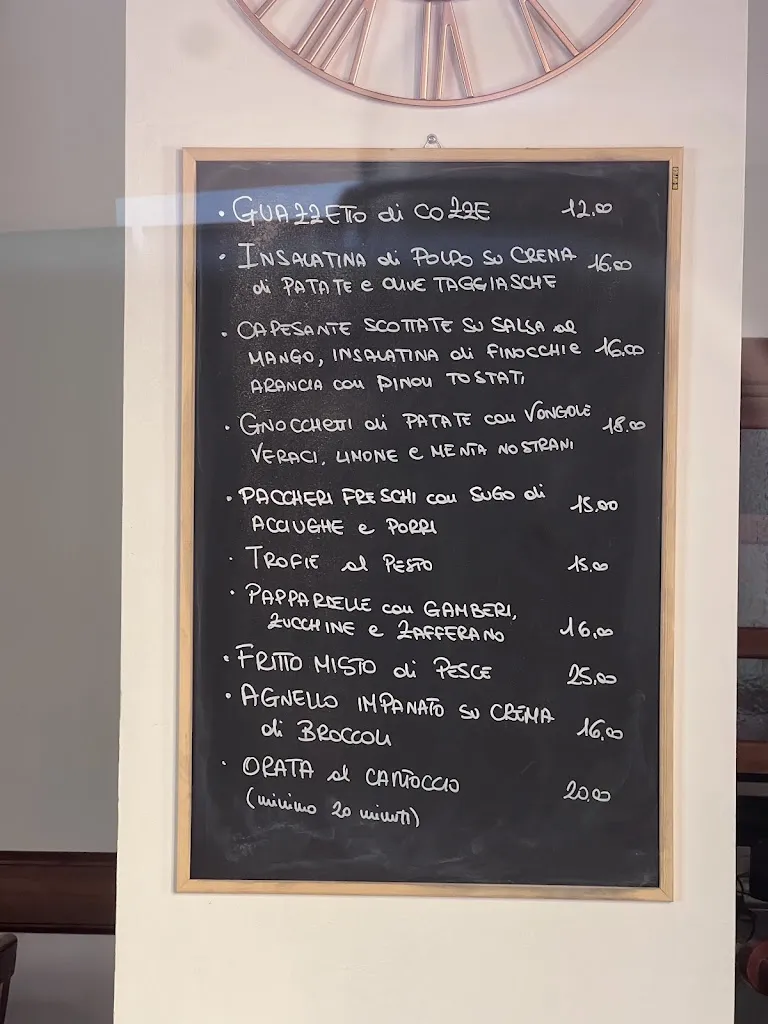 • GUAZZETTO di COZZE 12.00
• INSALATINA di POLPO SU CREMA 16.00
di PATATE e OLIVE TAGGIASCHE
• CAPESANTE SCOTTATE SU SALSA al
MANGO, INSALATINA di FINOCCHI e 16.00
ARANCIA con PINOLI TOSTATI
• GNOCCHETTI di PATATE con VONGOLE 18.00
VERACI, LIMONE e MENTA NOSTRANI
• PACCHERI FRESCHI con SUGO di 15.00
ACCIUGHE e PORRI
• TROFIE al PESTO 15.00
• PAPPARDELLE con GAMBERI,
ZUCCHINE e ZAFFERANO 16.00
• FRITTO MISTO di PESCE 25.00
• AGNELLO IMPANATO SU CREMA 16.00
di BROCCOLI
• ORATA al CARTOCCIO 20.00
(minimo 20 minuti)